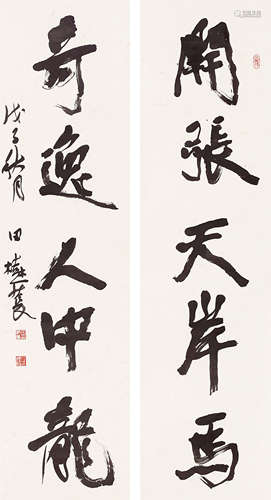 開張天岸馬
奇逸人中龍
戊子秋月
田樹萇